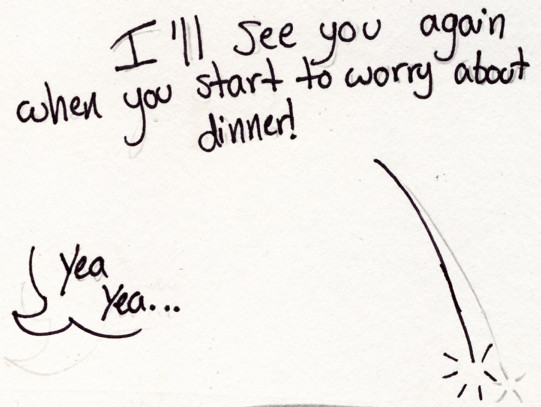 I'll see you again
when you start to worry about
dinner!
Yea
Yea...